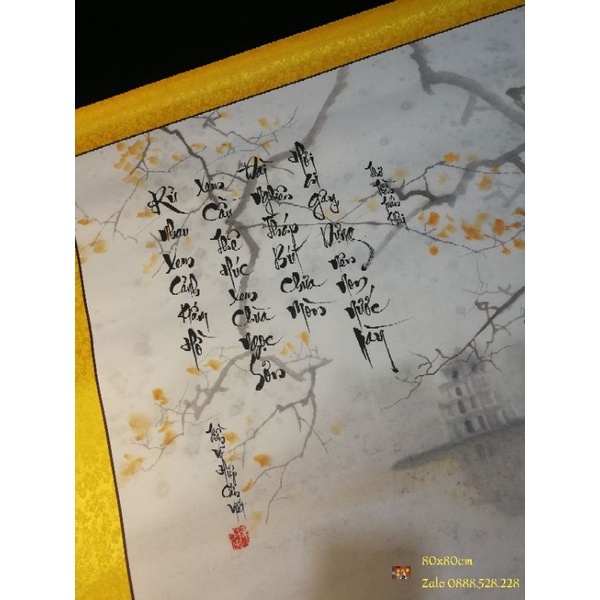 Rủ nhau xem Cảnh Kiếm Hồ
Xem Cầu Thê Húc xem Chùa Ngọc Sơn
Đài Nghiên Tháp Bút Chưa mòn
Hỏi ai gây Dựng nên non nước này
Thơ Trần Tuấn Khải
Vũ Hiệp Cẩn viết
80x80cm
Zalo 0888.528.228